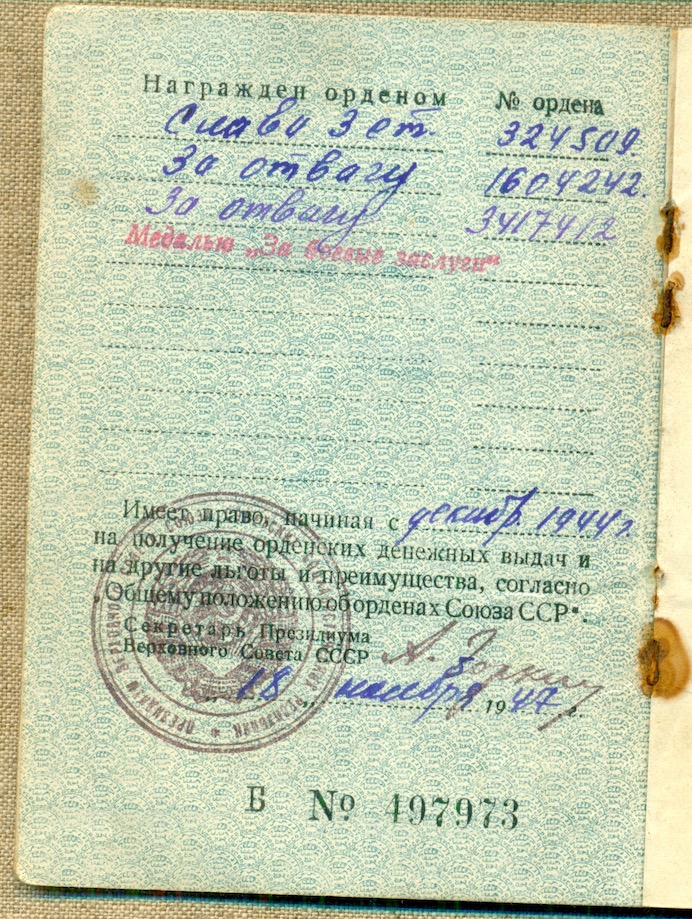 Награжден орденом № ордена
Слава 3 ст. 324509.
За отвагу 1604242.
За отвагу 3417412
Медалью „За боевые заслуги“
Имеет право, начиная с декабр. 1944 г.
на получение орденских денежных выдач и
на другие льготы и преимущества, согласно
„Общему положению об орденах Союза ССР“.
Секретарь Президиума
Верховного Совета СССР А. Горкин
„18„ ноября 1947 г.
Б № 497973